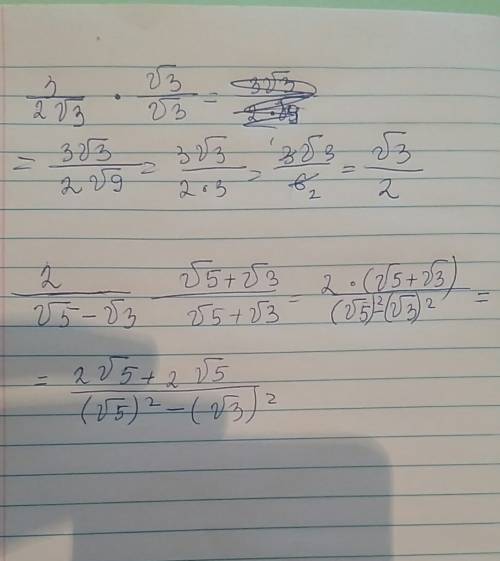 3/(2√3) · √3/√3 = 3√3/(2·√9)
= 3√3/(2√9) = 3√3/(2·3) = 3√3/6 2 = √3/2
2/(√5-√3) (√5+√3)/(√5+√3) = 2·(√5+√3)/((√5)²-(√3)²) =
= (2√5+2√5)/((√5)²-(√3)²)